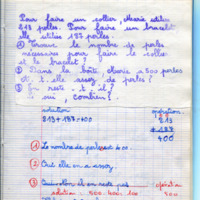 Pour faire un collier, Marie utilise
213 perles. Pour faire un bracelet
elle utilise 187 perles.
① Trouve le nombre de perles
nécessaires pour faire le collier
et le bracelet ?
② Dans la boîte Marie a 500 perles
a t elle assez de perles ?
③ En reste t il ?
si oui, combien ?
solution opération
213+187=400 213
+ 187
400
① Le nombre de perles est 400.
② Oui elle en a assez.
③ Oui il en reste opération
solution = 500 - 400 = 100 500